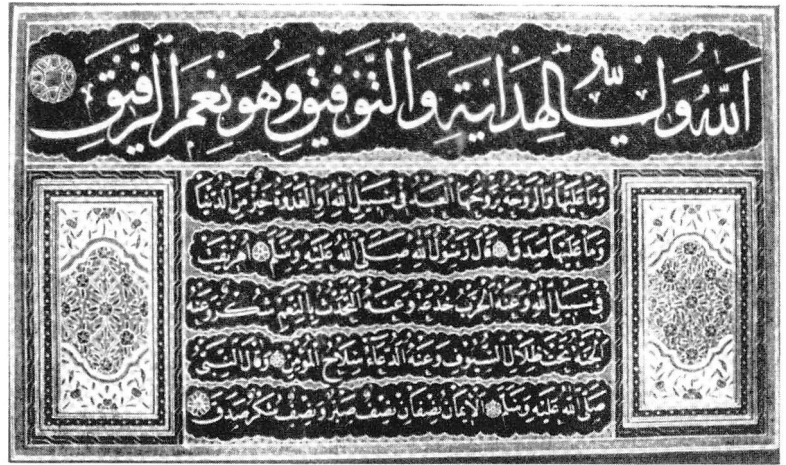 اَللّٰهُ وَلِيُّ الْهِدَايَةِ وَالتَّوْفِيقِ وَهُوَ نِعْمَ الرَّفِيقُ
وما عليها والروحة يروحها العبد في سبيل الله والغدوة خير من الدنيا
وما عليها صدق قال رسول الله صلى الله عليه وسلم
في سبيل الله وعنه الحرب خدعة وعنه التحدث بالنعم شكر وعنه
الجنة تحت ظلال السيوف وعنه الدعاء سلاح المؤمن وقال النبي
صلى الله عليه وسلم الايمان نصفان نصف صبر ونصف شكر صدق